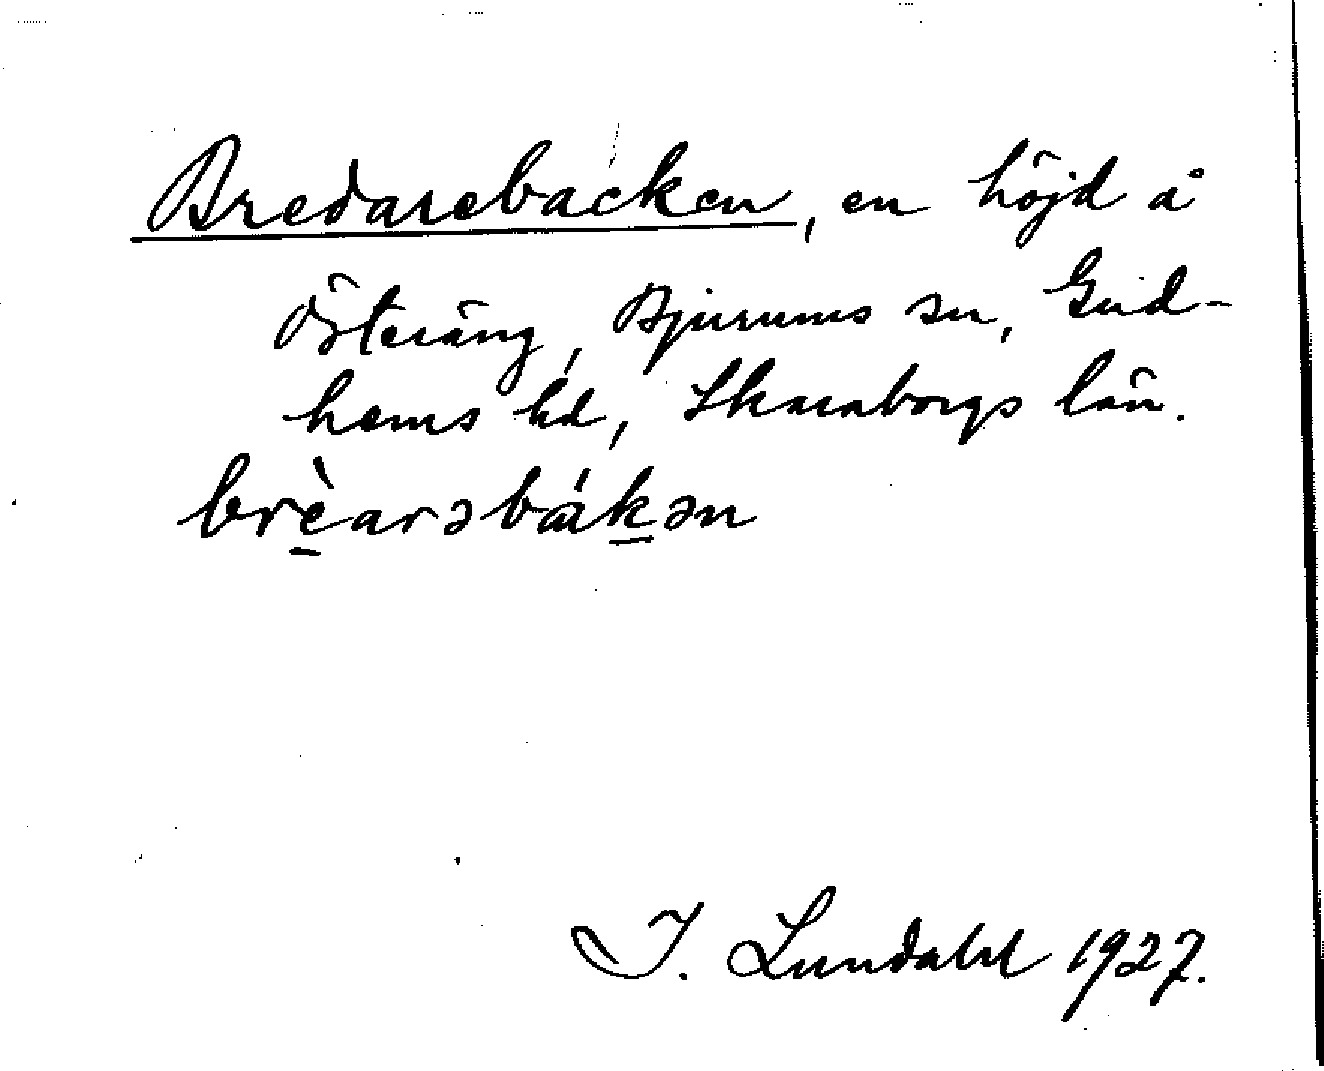 Bredarebacken, en höjd å
Österäng, Bjurums sn, Gud-
hems hd, Skaraborgs län.
brèarəbákən
I. Lundahl 1927.